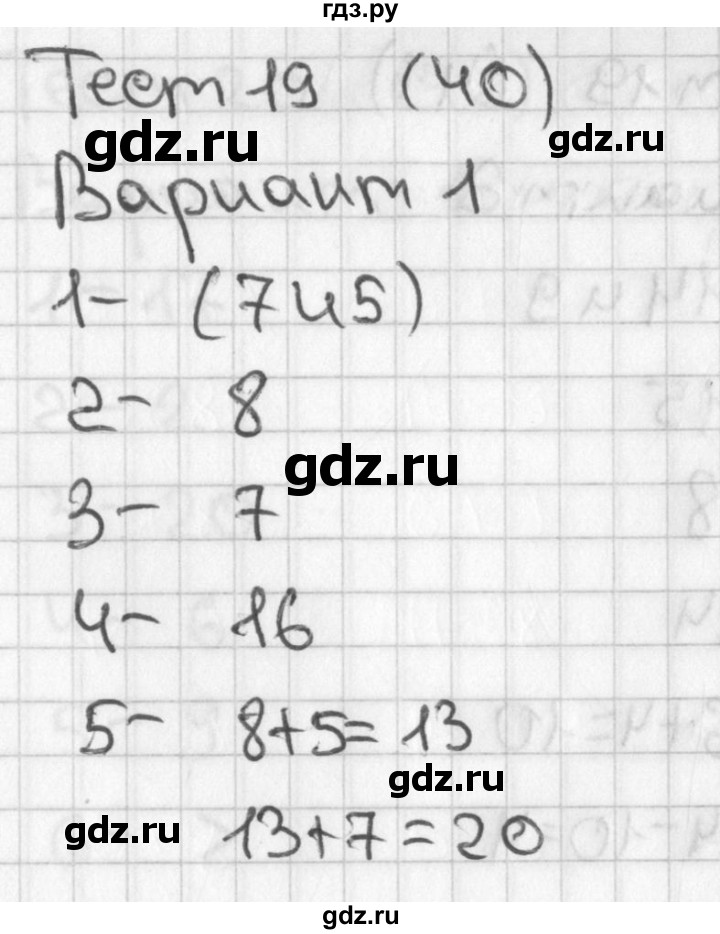 гдз.ру
Тест 19 (40)
gdz.ru
gdz.ru
Вариант 1
1- (7 и 5)
2- 8
gdz.ru
3- 7
4- 16
5- 8+5=13
gdz.ru
gdz.ru
13+7=20
gdz.ru